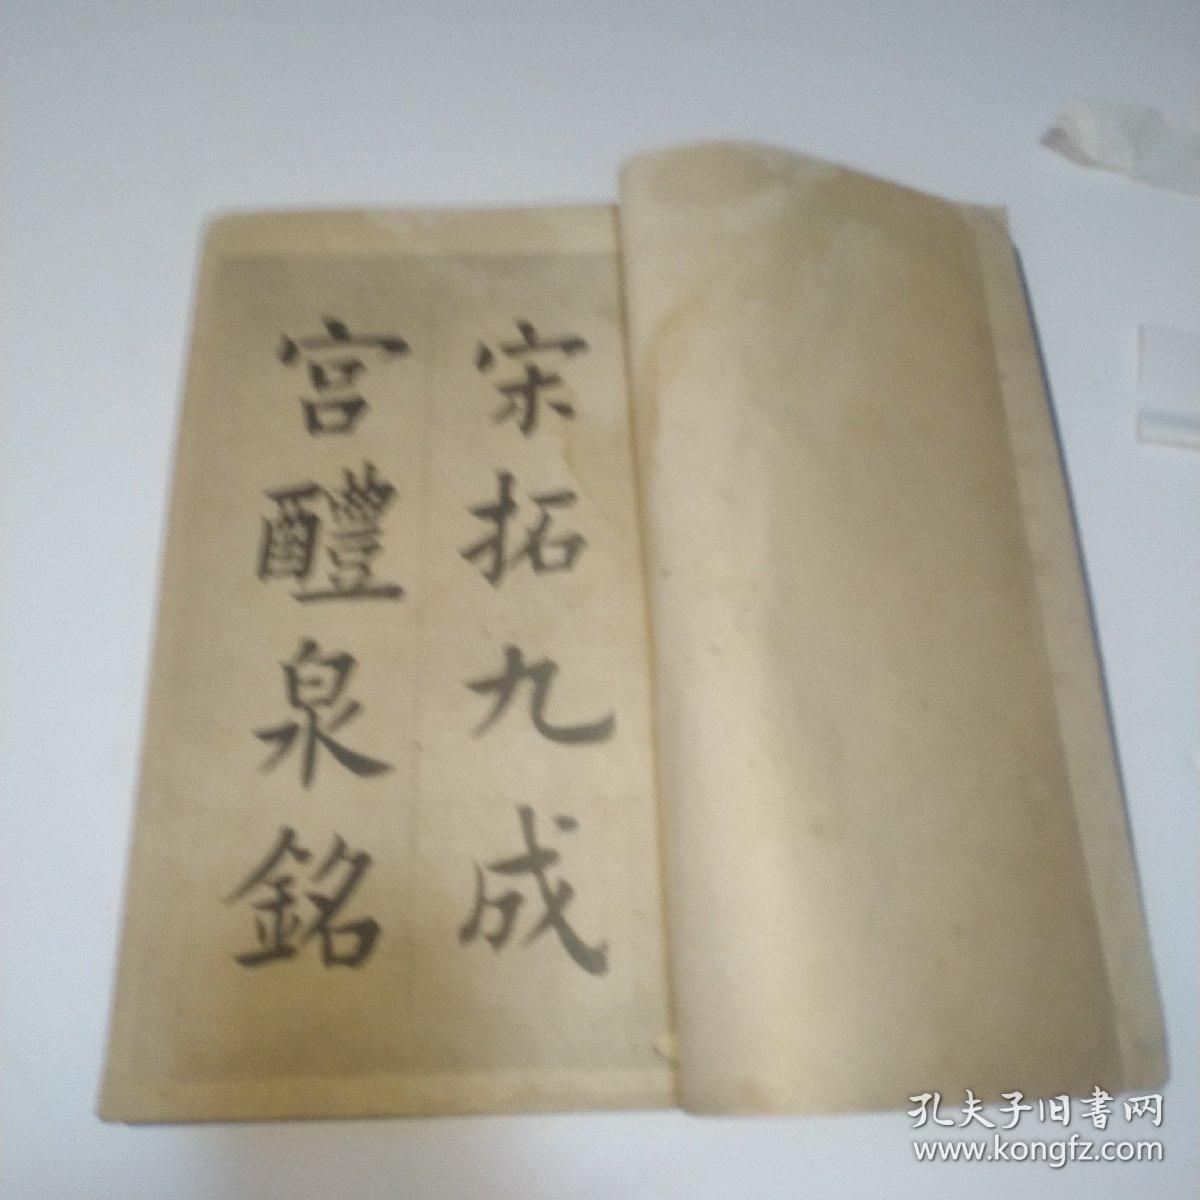 宋拓九成
宫醴泉銘
孔夫子旧書网
www.kongfz.com